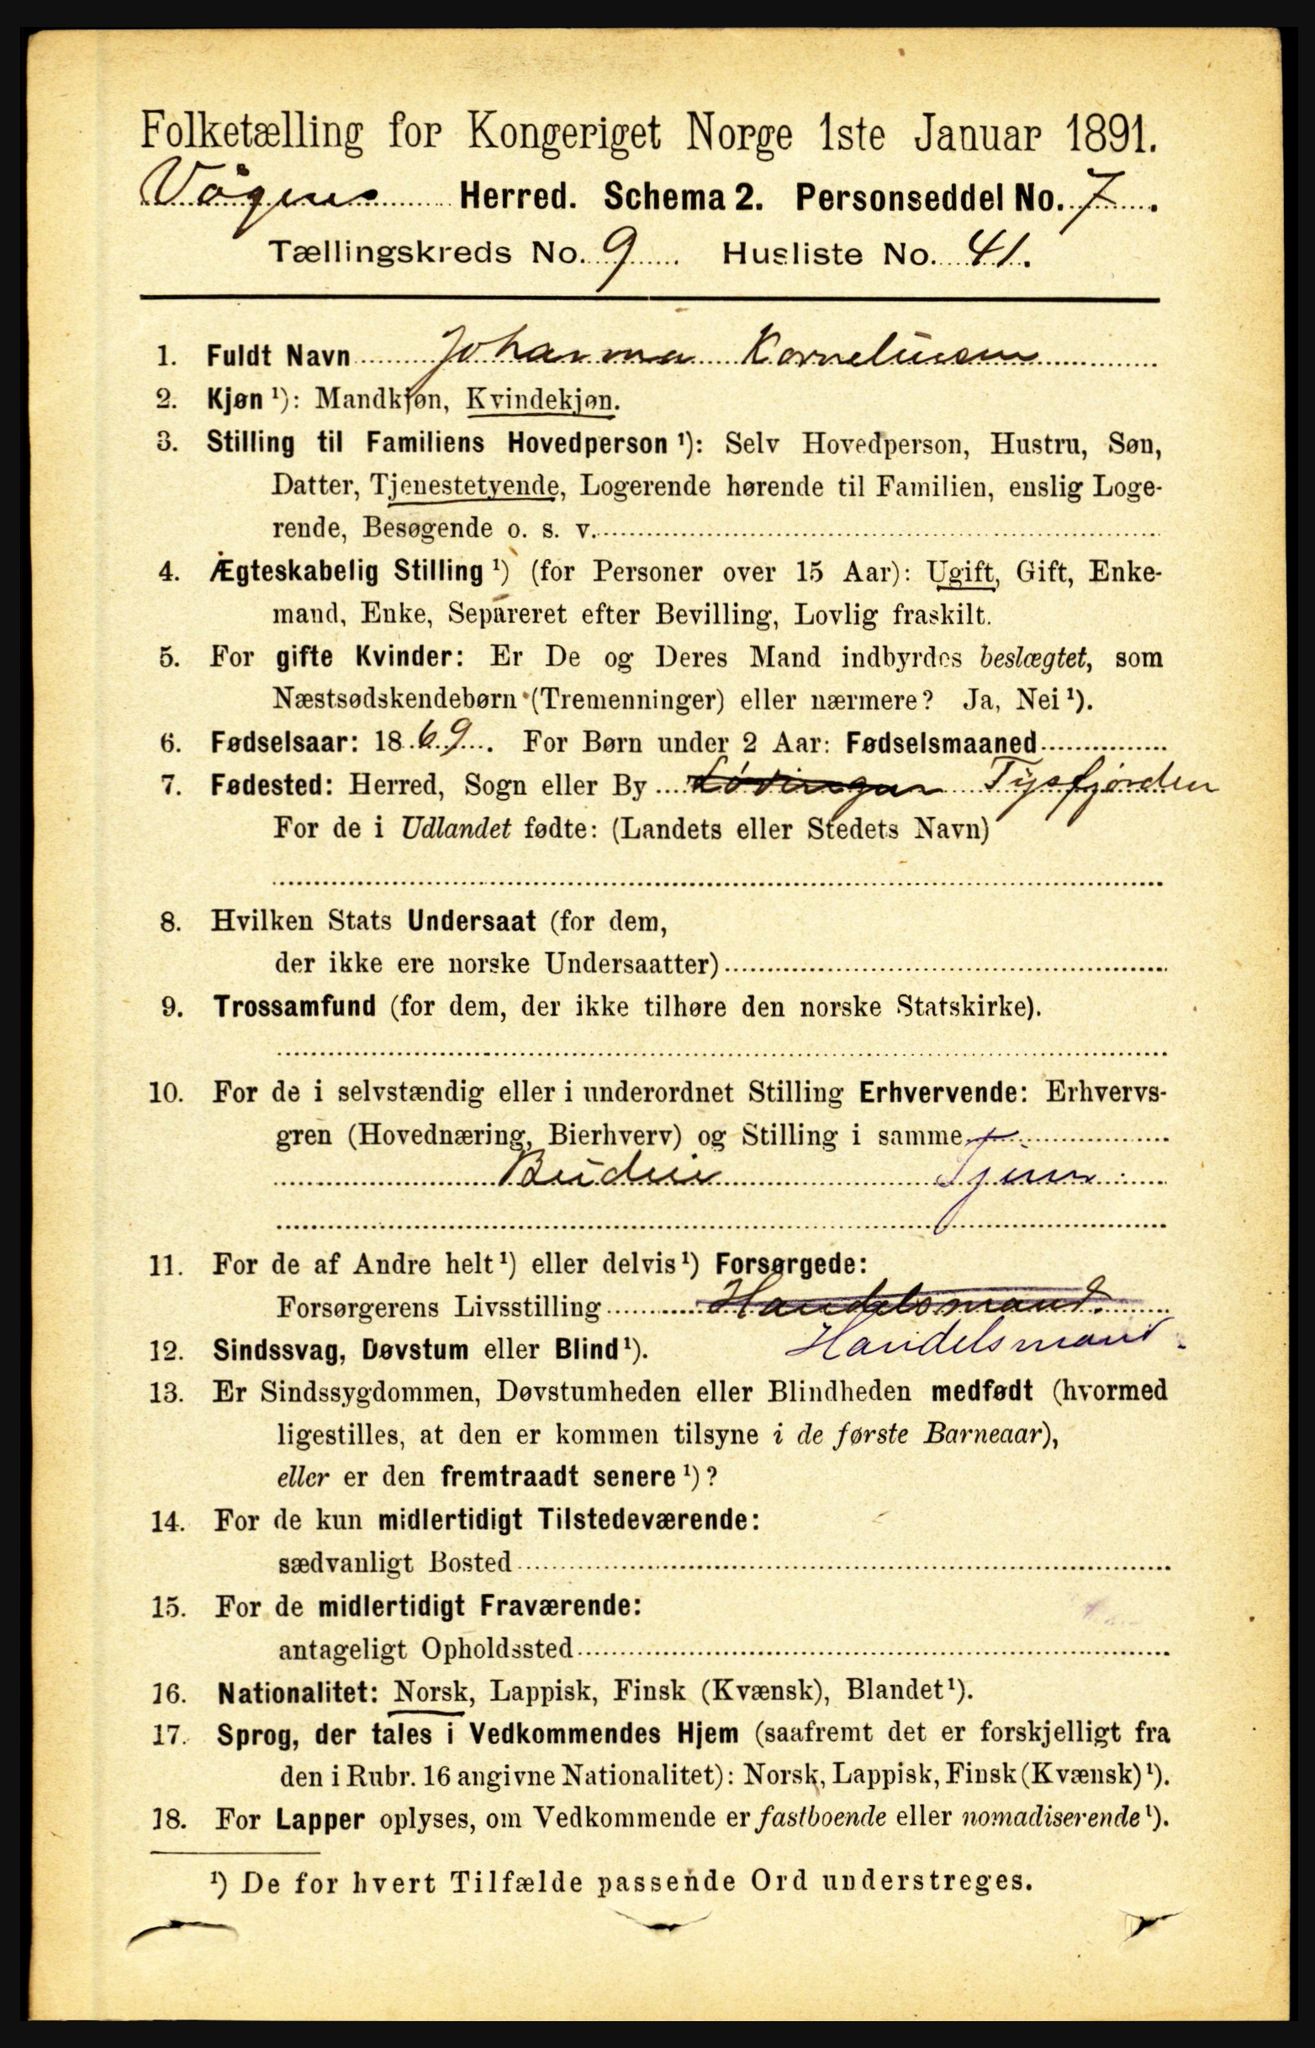 Folketælling for Kongeriget Norge 1ste Januar 1891.
Vågens Herred. Schema 2. Personseddel No. 7.
Tællingskreds No. 9. Husliste No. 41.
1. Fuldt Navn Johanna Korneliusen
2. Kjøn ¹): Mandkjøn, Kvindekjøn.
3. Stilling til Familiens Hovedperson ¹): Selv Hovedperson, Hustru, Søn,
Datter, Tjenestetyende, Logerende hørende til Familien, enslig Loge-
rende, Besøgende o. s. v.
4. Ægteskabelig Stilling ¹) (for Personer over 15 Aar): Ugift, Gift, Enke-
mand, Enke, Separeret efter Bevilling, Lovlig fraskilt.
5. For gifte Kvinder: Er De og Deres Mand indbyrdes beslægtet, som
Næstsødskendebørn (Tremenninger) eller nærmere? Ja, Nei ¹).
6. Fødselsaar: 1869. For Børn under 2 Aar: Fødselsmaaned
7. Fødested: Herred, Sogn eller By Lødingen Tysfjorden
For de i Udlandet fødte: (Landets eller Stedets Navn)
8. Hvilken Stats Undersaat (for dem,
der ikke ere norske Undersaatter)
9. Trossamfund (for dem, der ikke tilhøre den norske Statskirke).
10. For de i selvstændig eller i underordnet Stilling Erhvervende: Erhvervs-
gren (Hovednæring, Bierhverv) og Stilling i samme
Budeie Tjen
11. For de af Andre helt ¹) eller delvis ¹) Forsørgede:
Forsørgerens Livsstilling Handelsmand.
12. Sindssvag, Døvstum eller Blind ¹). Handelsmand.
13. Er Sindssygdommen, Døvstumheden eller Blindheden medfødt (hvormed
ligestilles, at den er kommen tilsyne i de første Barneaar),
eller er den fremtraadt senere ¹)?
14. For de kun midlertidigt Tilstedeværende:
sædvanligt Bosted
15. For de midlertidigt Fraværende:
antageligt Opholdssted
16. Nationalitet: Norsk, Lappisk, Finsk (Kvænsk), Blandet ¹).
17. Sprog, der tales i Vedkommendes Hjem (saafremt det er forskjelligt fra
den i Rubr. 16 angivne Nationalitet): Norsk, Lappisk, Finsk (Kvænsk) ¹).
18. For Lapper oplyses, om Vedkommende er fastboende eller nomadiserende ¹).
¹) De for hvert Tilfælde passende Ord understreges.